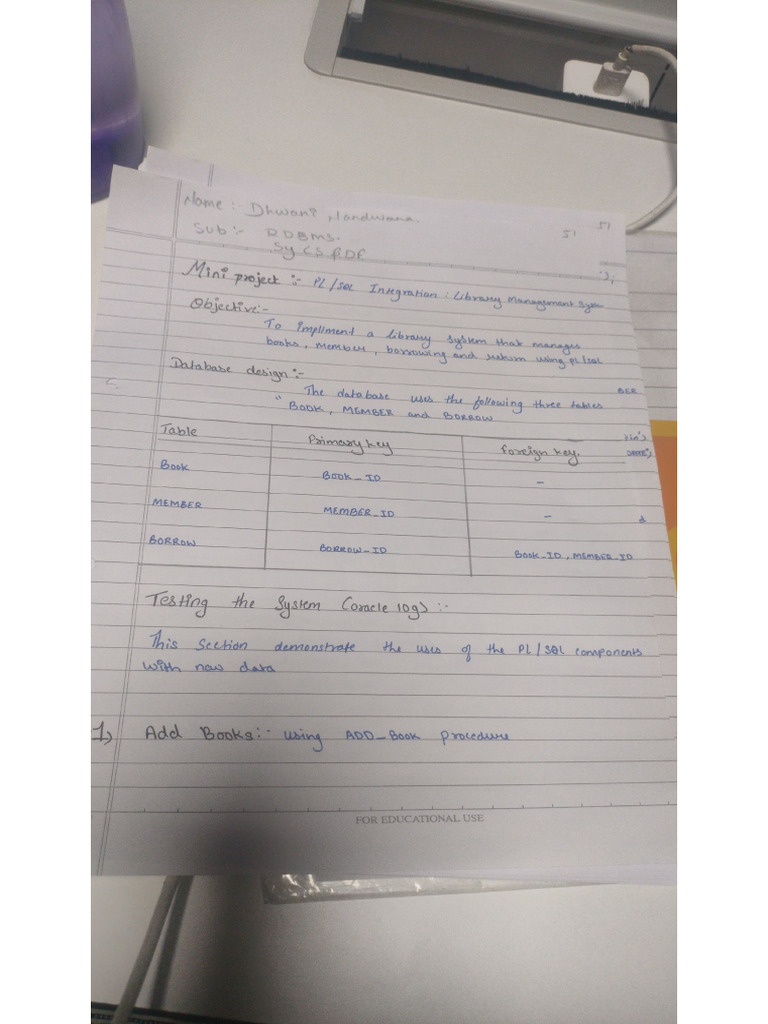 Name :- Dhwani Nandwana.
Sub :- RDBMS.
Sy CS
Mini project :- PL/SQL Integration : Library Management
Objective:-
To impliment a library system that manages
books, member, borrowing and return using pl/sql
Database design:-
BER
The database uses the following three tables
" BOOK, MEMBER and BORROW
Table Primary key foreign key.
Book BOOK_ID -
MEMBER MEMBER_ID -
BORROW BORROW_ID BOOK_ID, MEMBER_ID
Testing the System (oracle log) :-
This Section demonstrate the uses of the PL/SQL components
with new data
1, Add Books:- using ADD_Book procedure
FOR EDUCATIONAL USE